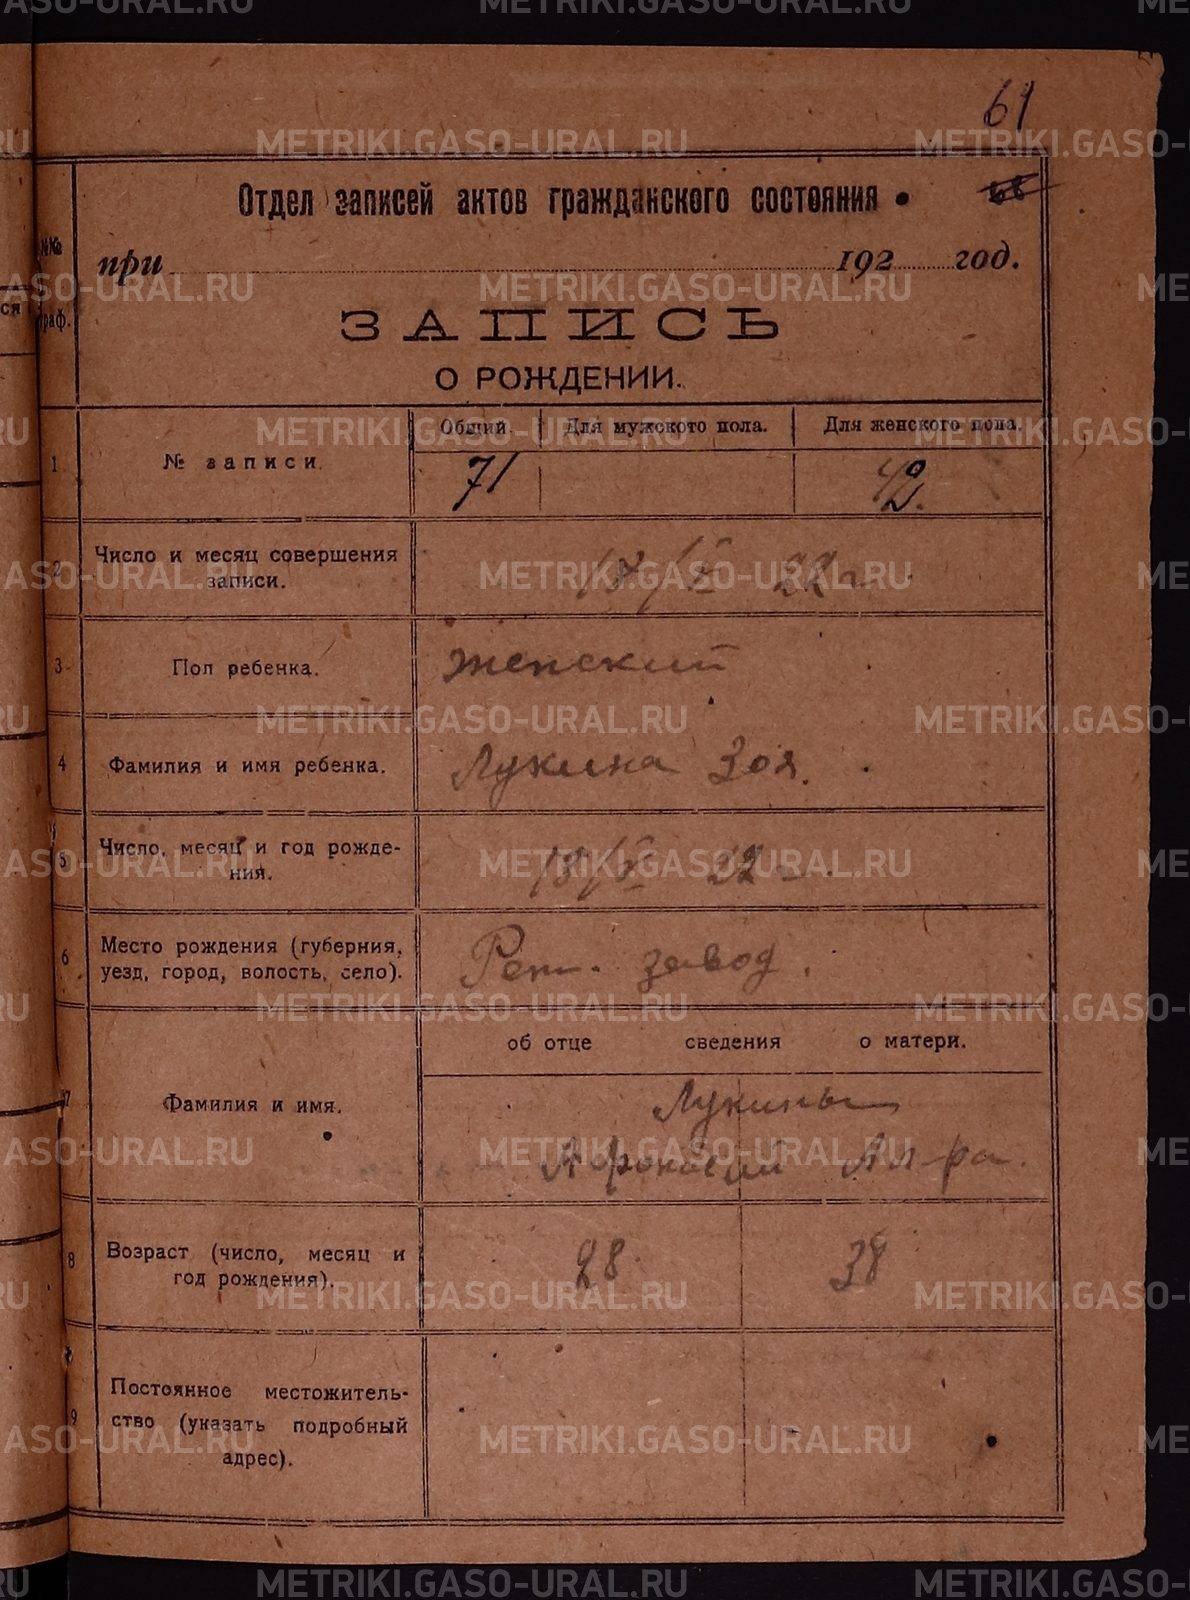 61
Отдел записей актов гражданского состояния
при 192 год.
№№ граф.
ЗАПИСЬ
О РОЖДЕНИИ.
1 № записи. Общий. Для мужского пола. Для женского пола.
71 42.
2 Число и месяц совершения записи. 18/V 22 г.
3 Пол ребенка. Женский
4 Фамилия и имя ребенка. Лукина Зоя.
5 Число, месяц и год рождения. 18/V 22
6 Место рождения (губерния, уезд, город, волость, село). завод.
об отце сведения о матери.
7 Фамилия и имя. Лукины
Афонасий Ал-ра.
8 Возраст (число, месяц и год рождения). 28 38
9 Постоянное местожительство (указать подробный адрес).
METRIKI.GASO-URAL.RU